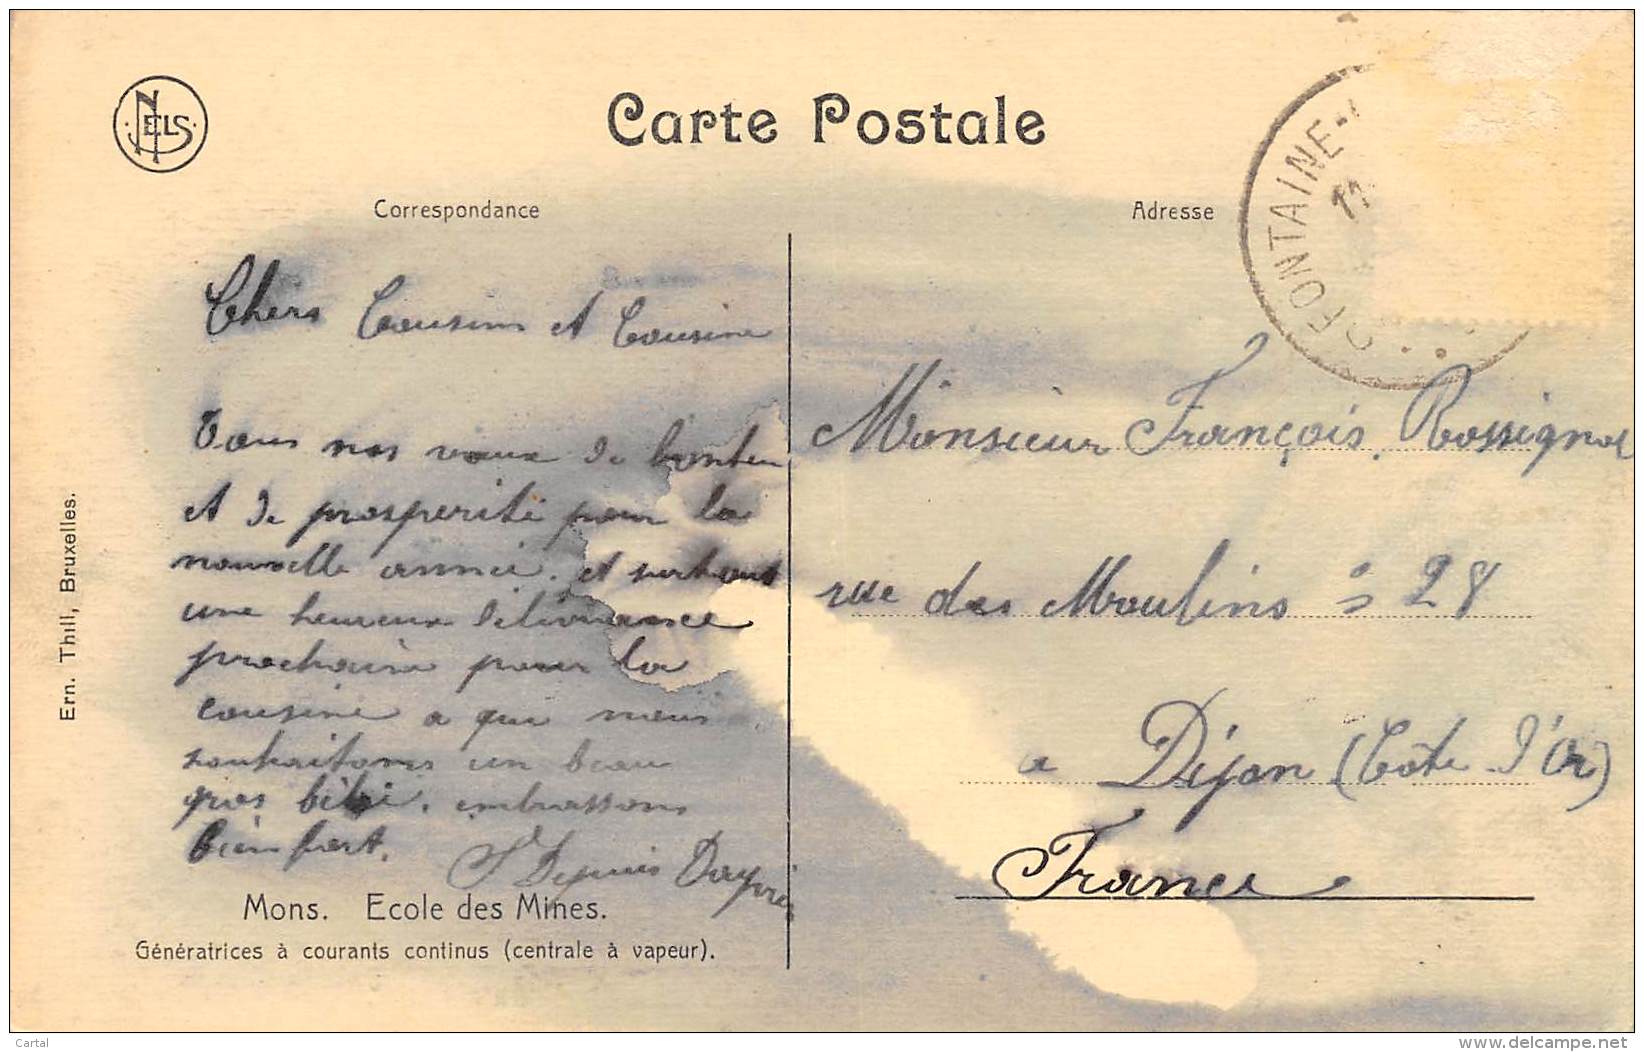 NELS
Carte Postale
Correspondance
Adresse
FONTAINE-
11
Chers Cousins et Cousine
Tous nos vœux de bonheur
et de prosperité pour la
nouvelle année. et surtout
une heureuse délivrance
prochaine pour la
cousine a qui nous
souhaitons un beau
gros bébé. embrassons
bien fort.
Monsieur François Rossignol
rue des Moulins 28
a Dijon (Côte d'Or)
France
Mons. Ecole des Mines.
Génératrices à courants continus (centrale à vapeur).
Ern. Thill, Bruxelles.
Cartal
www.delcampe.net